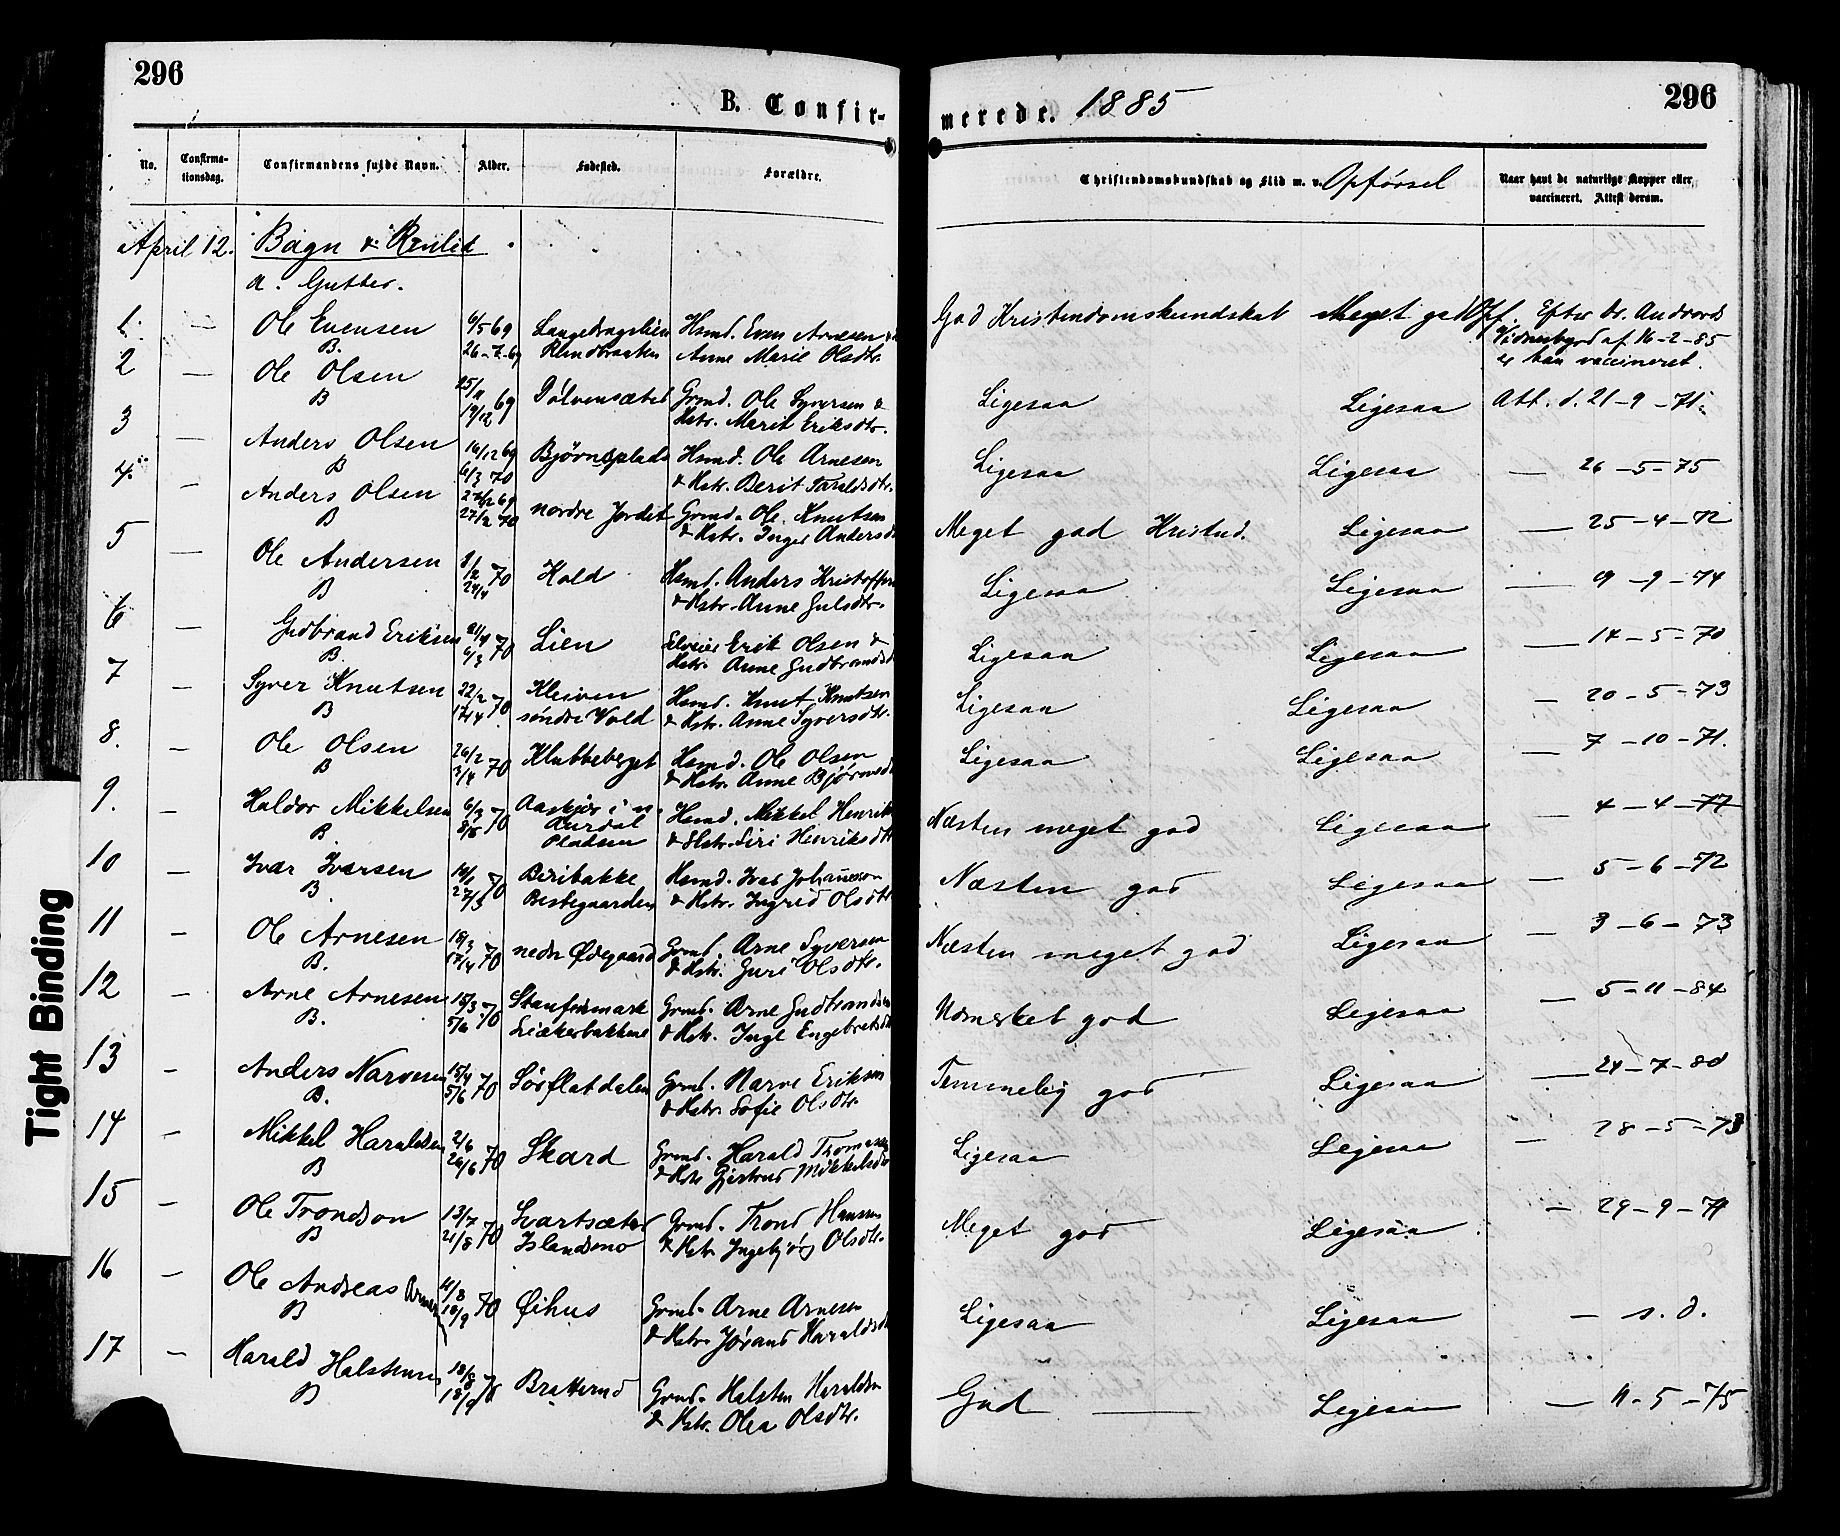 296
296
B. Confir-
merede. 1885
No.
Confirma-
tionsdag.
Confirmandens fulde Navn.
Alder.
Fødested.
Forældre.
Christendomskundskab og Flid m. v. Opførsel
Naar havt de naturlige Kopper eller
vaccineret. Attest derom.
April 12. Bagn & Renlid
a. Gutter.
1. — Ole Evensen 6/5 69 Hsmd. Even Arnesen God Kristendomskundskab Meget god Opf. Efter Dr.
B. 26-7-69 Anne Marie Olsdtr. Vidnesbyrd af 16-2-85
er han vaccineret.
2 — Ole Olsen 69 Dølvensæter Grmd. Ole Syversen & Ligesaa Ligesaa Att. d. 21-9-71.
B 19/12 Kstr. Marit Eriksdtr.
3 — Anders Olsen 16/12 69 Bjørnsplads Hsmd. Ole Arnesen Ligesaa Ligesaa — 26-5-75
B 6/3 70 & Kstr. Berit
4. — Anders Olsen 69 nordre Jordet Grmd. Ole Knutsen Meget god Kristnd. Ligesaa — 25-4-72
B 27/2 70 & Kstr. Inger Andersd
5 — Ole Andersen 70 Hold Hsmd. Anders Ligesaa Ligesaa — 19-9-74
B 24/4 & Kstr. Anne
6 — Gudbrand Eriksen 70 Lien Erik Olsen & Ligesaa Ligesaa — 14-5-70
B. 6/3 Kstr. Anne Gudbrandsd
7 — Syver Knutsen 22/2 70 Kleiven Hsmd. Knut Knutsen Ligesaa Ligesaa — 20-5-73
B 17/4 søndre Vold & Kstr. Anne Syversdtr.
8. — Ole Olsen 26/2 70 Klubbeberget Hsmd. Ole Olsen Ligesaa Ligesaa — 7-10-71.
B 3/4 & Kstr. Anne Bjørnsd
9. — Haldor Mikkelsen 6/3 70 Aaskjær i n. Hsmd. Mikkel Henrik Næsten meget god Ligesaa — 4-4-77
B. 8/5 Aurdal & Kstr. Siri Henriksdtr
Pladsen
10 — Ivar Iversen 70 Beribakke Hsmd. Ivar Johanneson Næsten god Ligesaa — 5-6-72
B. 27/3 Bestegaarden & Kstr. Ingrid Olsdtr
11 — Ole Arnesen 18/3 70 nedre Ødegaard Grmd. Arne Syversen Næsten meget god Ligesaa — 3-6-73
B. 17/4 & Kstr. Guri Olsdtr.
12 — Arne Arnesen 15/3 70 Grmd. Arne Gudbrandsen Udmerket god Ligesaa — 5-11-84
B. 5/6 & Kstr. Inge Engebretsd
13 — Anders Narvesen 15/4 70 Sørflatdalen Grmd. Narve Eriksen Temmelig god Ligesaa — 24-7-80
B. 5/6 & Kstr. Sofie Olsdtr.
14 — Mikkel Haraldsen 2/6 70 Skard Grmd. Harald Thomasen Ligesaa Ligesaa — 28-5-73
B 26/6 & Kstr Gjertrud Mikkelsd
15 — Ole Trondson 13/7 70 Svartsæter Grmd. Trond Hansen Meget god Ligesaa — 29-9-79
B 21/8 Islandsmo & Kstr. Ingebjørg Olsdtr.
16 — Ole Andreas Arnesen 11/8 70 Øihus Grmd. Arne Arnesen Ligesaa Ligesaa — s. d.
B 18/9 & Kstr. Jørand Haraldsd
17 — Harald Halstensen 18/8 70 Bratterud Grmd. Halsten Haraldsn God — Ligesaa — 11-5-75
B 18/9 & Kstr. Olea Olsdtr.
Tight Binding